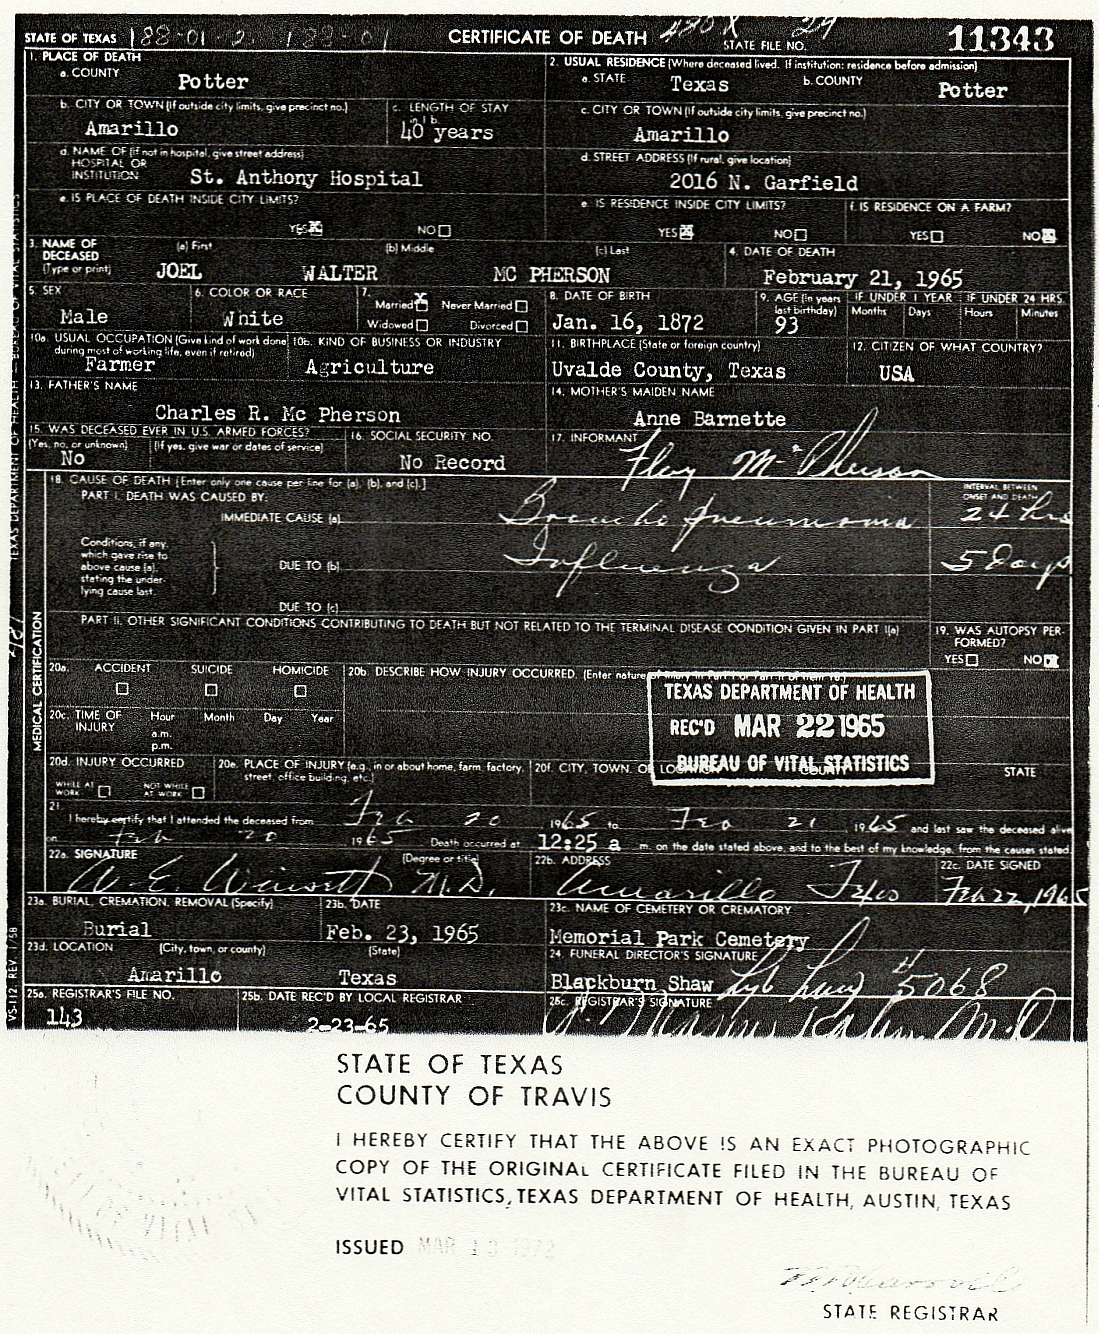 STATE OF TEXAS 188-01-2. 188-01 CERTIFICATE OF DEATH 480X 29 STATE FILE NO. 11343
1. PLACE OF DEATH
a. COUNTY Potter
2. USUAL RESIDENCE (Where deceased lived. If institution: residence before admission)
a. STATE Texas b. COUNTY Potter
b. CITY OR TOWN (If outside city limits, give precinct no.) Amarillo
c. LENGTH OF STAY in 1 b. 40 years
c. CITY OR TOWN (If outside city limits, give precinct no.) Amarillo
d. NAME OF (If not in hospital, give street address) HOSPITAL OR INSTITUTION St. Anthony Hospital
d. STREET ADDRESS (If rural, give location) 2016 N. Garfield
e. IS PLACE OF DEATH INSIDE CITY LIMITS? YES X NO
e. IS RESIDENCE INSIDE CITY LIMITS? YES X NO
f. IS RESIDENCE ON A FARM? YES NO X
3. NAME OF DECEASED (Type or print) (a) First JOEL (b) Middle WALTER (c) Last MC PHERSON
4. DATE OF DEATH February 21, 1965
5. SEX Male
6. COLOR OR RACE White
7. Married X Never Married Widowed Divorced
8. DATE OF BIRTH Jan. 16, 1872
9. AGE (In years last birthday) 93
IF UNDER 1 YEAR Months Days
IF UNDER 24 HRS. Hours Minutes
10a. USUAL OCCUPATION (Give kind of work done during most of working life, even if retired) Farmer
10b. KIND OF BUSINESS OR INDUSTRY Agriculture
11. BIRTHPLACE (State or foreign country) Uvalde County, Texas
12. CITIZEN OF WHAT COUNTRY? USA
13. FATHER'S NAME Charles R. Mc Pherson
14. MOTHER'S MAIDEN NAME Anne Barnette
15. WAS DECEASED EVER IN U.S. ARMED FORCES? (Yes, no, or unknown) No (If yes, give war or dates of service)
16. SOCIAL SECURITY NO. No Record
17. INFORMANT Floy McPherson
18. CAUSE OF DEATH [Enter only one cause per line for (a), (b), and (c).]
PART I. DEATH WAS CAUSED BY:
INTERVAL BETWEEN ONSET AND DEATH
IMMEDIATE CAUSE (a) Broncho pneumonia 24 hrs
Conditions, if any, which gave rise to above cause (a), stating the underlying cause last.
DUE TO (b) Influenza 5 Days
DUE TO (c)
PART II. OTHER SIGNIFICANT CONDITIONS CONTRIBUTING TO DEATH BUT NOT RELATED TO THE TERMINAL DISEASE CONDITION GIVEN IN PART I(a)
19. WAS AUTOPSY PERFORMED? YES NO X
MEDICAL CERTIFICATION
20a. ACCIDENT SUICIDE HOMICIDE
20b. DESCRIBE HOW INJURY OCCURRED. (Enter nature of injury in Part I or Part II of item 18.)
TEXAS DEPARTMENT OF HEALTH
REC'D MAR 22 1965
BUREAU OF VITAL STATISTICS
20c. TIME OF INJURY Hour Month Day Year
a.m.
p.m.
20d. INJURY OCCURRED WHILE AT WORK NOT WHILE AT WORK
20e. PLACE OF INJURY (e.g., in or about home, farm, factory, street, office building, etc.)
20f. CITY, TOWN, OR LOCATION COUNTY STATE
21. I hereby certify that I attended the deceased from Feb 20 1965 to Feb 21 1965 and last saw the deceased alive
on Feb 20 1965 Death occurred at 12:25 a m. on the date stated above, and to the best of my knowledge, from the causes stated.
22a. SIGNATURE (Degree or title) M.D.
22b. ADDRESS Amarillo Texas
22c. DATE SIGNED Feb 22, 1965
23a. BURIAL, CREMATION, REMOVAL (Specify) Burial
23b. DATE Feb. 23, 1965
23c. NAME OF CEMETERY OR CREMATORY Memorial Park Cemetery
23d. LOCATION (City, town, or county) Amarillo (State) Texas
24. FUNERAL DIRECTOR'S SIGNATURE Blackburn Shaw # 5068
25a. REGISTRAR'S FILE NO. 143
25b. DATE REC'D BY LOCAL REGISTRAR 2-23-65
25c. REGISTRAR'S SIGNATURE M.D.
TEXAS DEPARTMENT OF HEALTH — BUREAU OF VITAL STATISTICS
VS-112 REV. 1/58
STATE OF TEXAS
COUNTY OF TRAVIS
I HEREBY CERTIFY THAT THE ABOVE IS AN EXACT PHOTOGRAPHIC
COPY OF THE ORIGINAL CERTIFICATE FILED IN THE BUREAU OF
VITAL STATISTICS, TEXAS DEPARTMENT OF HEALTH, AUSTIN, TEXAS
ISSUED MAR 13 1972
STATE REGISTRAR